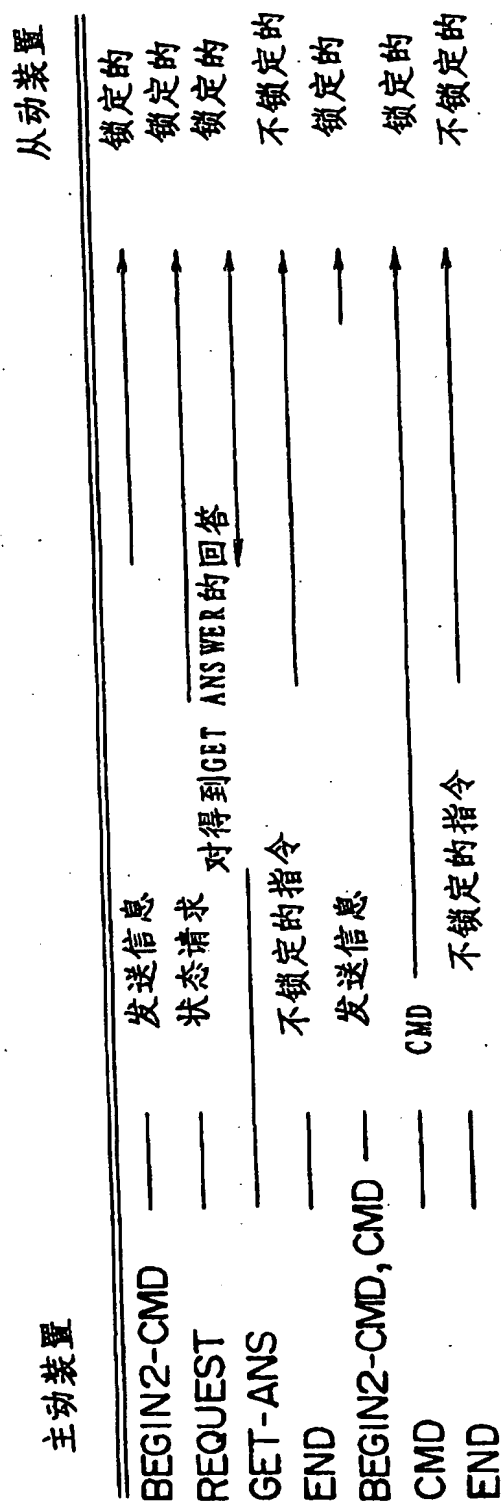 主动装置 从动装置
BEGIN2-CMD 发送信息 锁定的
REQUEST 状态请求 锁定的
GET-ANS 对得到GET ANSWER的回答 锁定的
END 不锁定的指令 不锁定的
BEGIN2-CMD, CMD 发送信息 锁定的
CMD CMD 锁定的
END 不锁定的指令 不锁定的